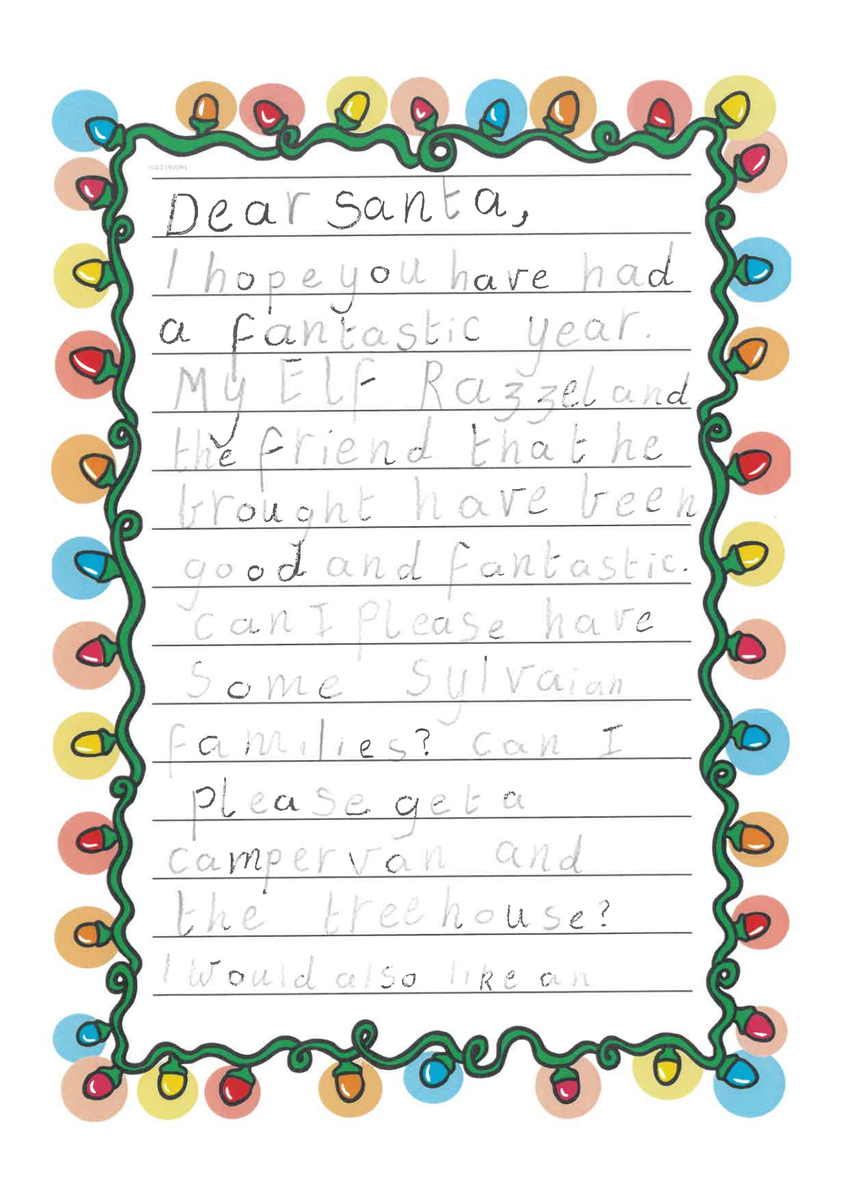 Dear Santa,
I hope you have had
a fantastic year.
My Elf Razzel and
the friend that he
brought have been
good and fantastic.
can I please have
some Sylvaian
families? can I
please get a
campervan and
the treehouse?
I would also like an